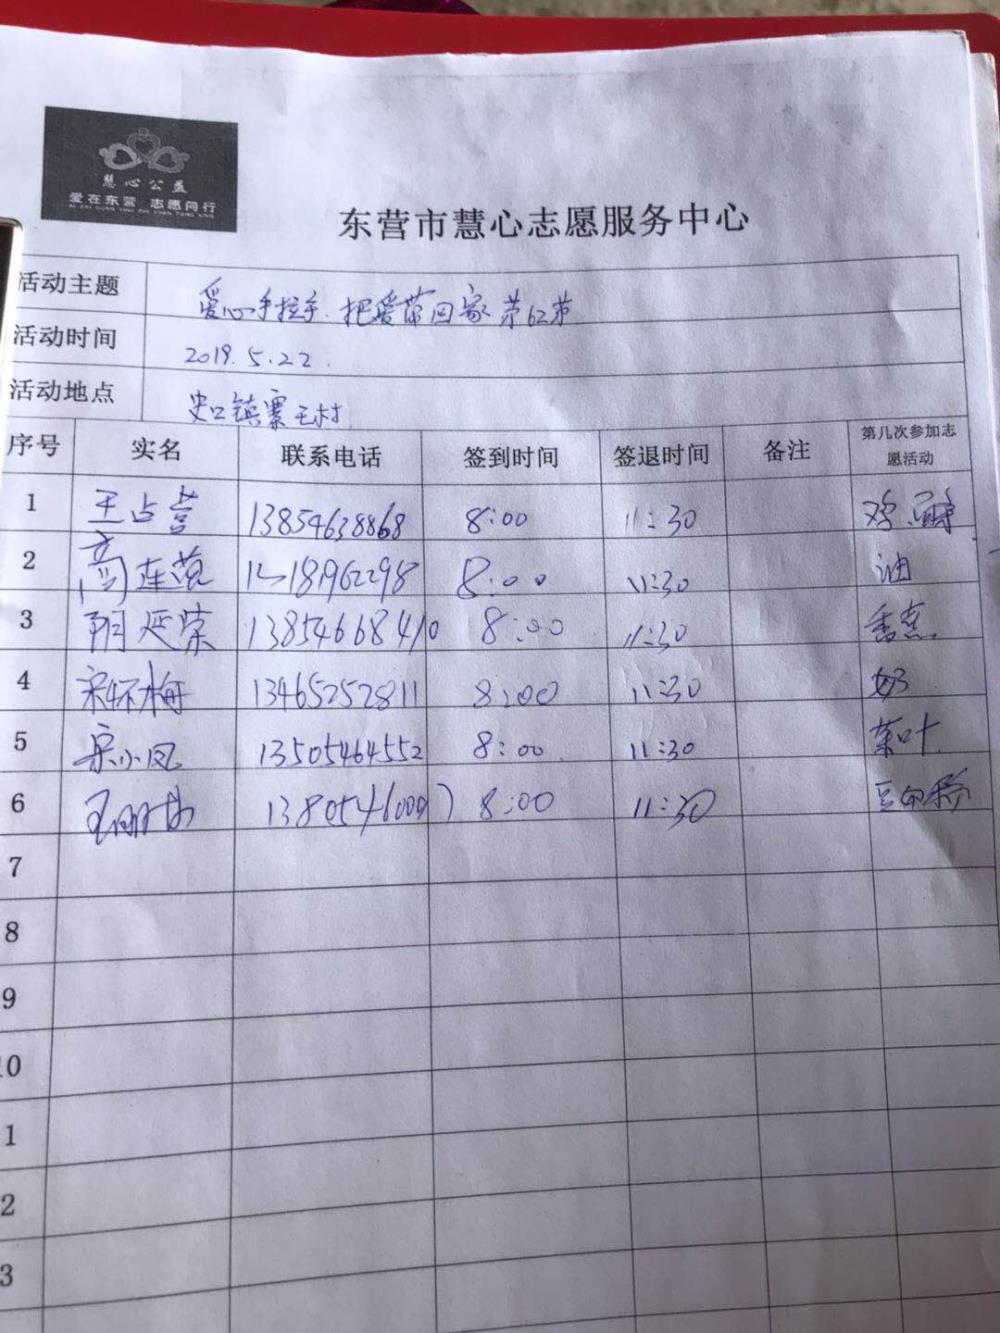 慧心公益
爱在东营 志愿同行
东营市慧心志愿服务中心
活动主题 爱心手拉手.把爱带回家 第62第
活动时间 2019.5.22.
活动地点 史口镇寨王村
序号 实名 联系电话 签到时间 签退时间 备注 第几次参加志
愿活动
1 王占营 13854638868 8:00 11:30
2 高连范 8:00 11:30 油
3 阴延荣 13854668410 8:00 11:30 香蕉
4 宋怀梅 13465252811 8:00 11:30 奶
5 宋小凤 13505464552 8:00 11:30 茶叶
6 8:00 11:30
7
8
9
10
1
2
3